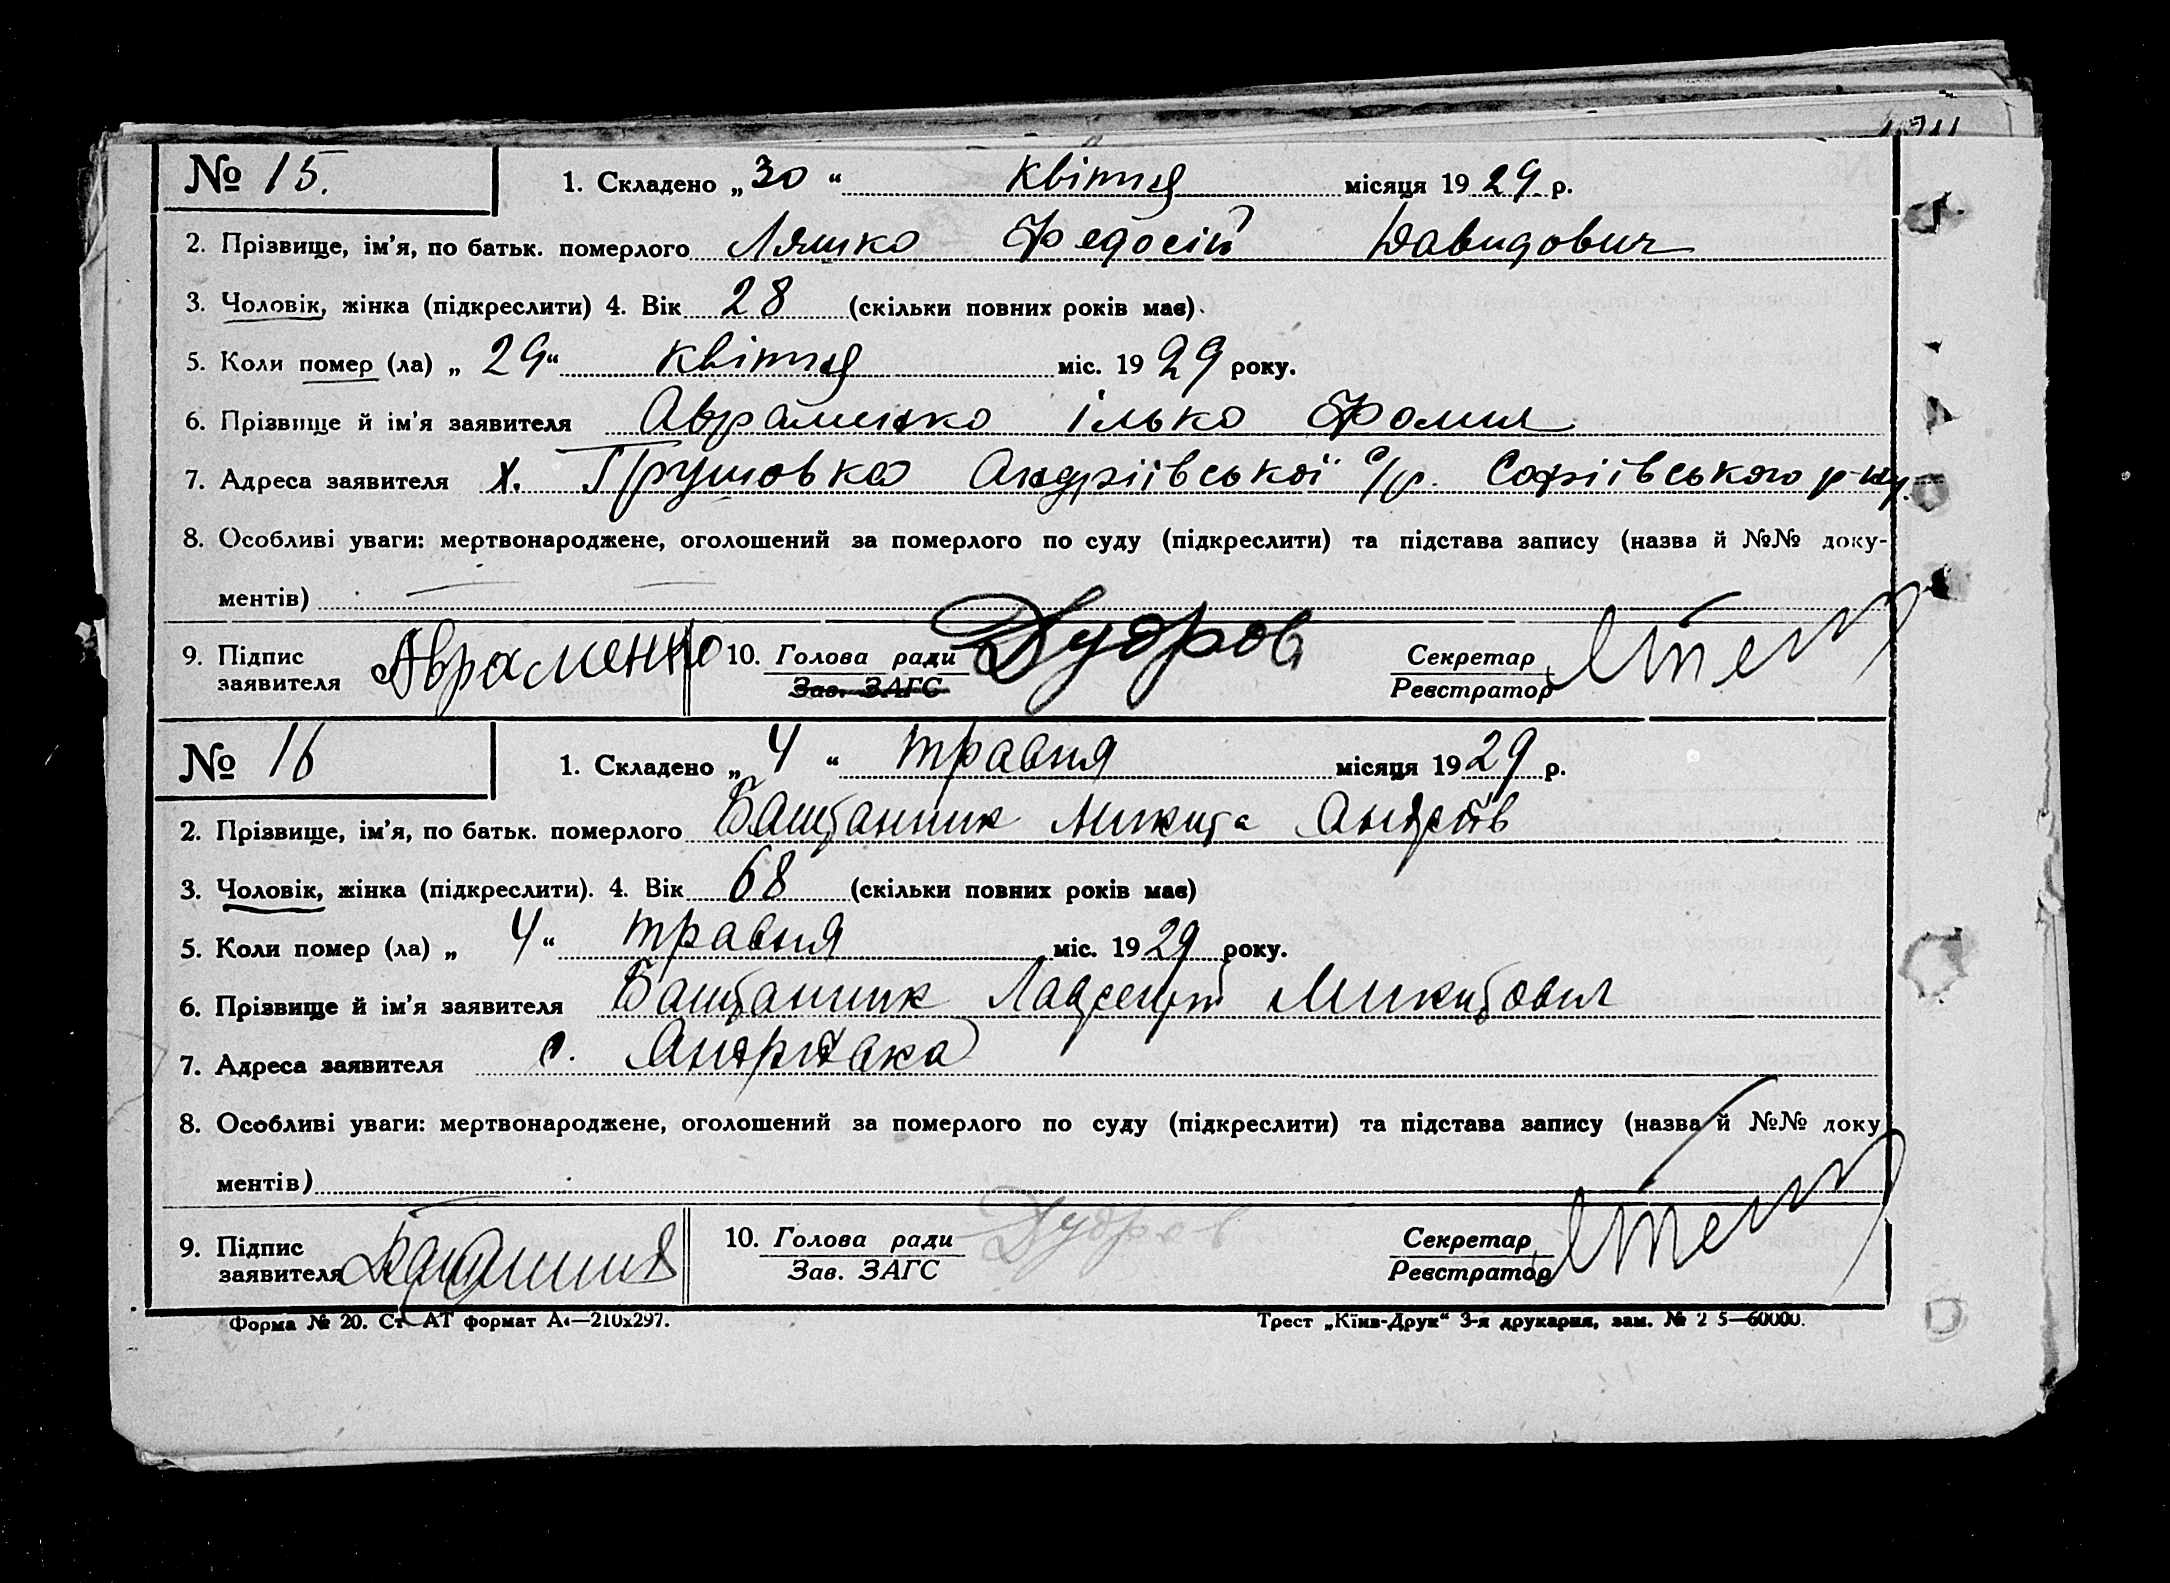 № 15. 1. Складено „30“ квітня місяця 1929 р.
2. Прізвище, ім'я, по батьк. померлого Ляшко Федосій Давидович
3. Чоловік, жінка (підкреслити) 4. Вік 28 (скільки повних років має).
5. Коли помер (ла) „29“ квітня міс. 1929 року.
6. Прізвище й ім'я заявителя Авраменко Ілько Фомич
7. Адреса заявителя х. Грушовка Андріївської с/р. Софіївського р-ну.
8. Особливі уваги: мертвонароджене, оголошений за померлого по суду (підкреслити) та підстава запису (назва й №№ доку-
ментів)
9. Підпис заявителя Авраменко 10. Голова ради Зав. ЗАГС Дудров Секретар Реєстратор
№ 16 1. Складено „4“ травня місяця 1929 р.
2. Прізвище, ім'я, по батьк. померлого Баштанник Микита Андріїв
3. Чоловік, жінка (підкреслити). 4. Вік 68 (скільки повних років має)
5. Коли помер (ла) „4“ травня міс. 1929 року.
6. Прізвище й ім'я заявителя Баштанник Лаврентій Микитович
7. Адреса заявителя с. Андріївка
8. Особливі уваги: мертвонароджене, оголошений за померлого по суду (підкреслити) та підстава запису (назва й №№ доку
ментів)
9. Підпис заявителя Баштанник 10. Голова ради Зав. ЗАГС Дудров Секретар Реєстратор
Форма № 20. Ст АТ формат А4—210х297. Трест „Київ-Друк“ 3-я друкарня, зам. № 2 5—60000.